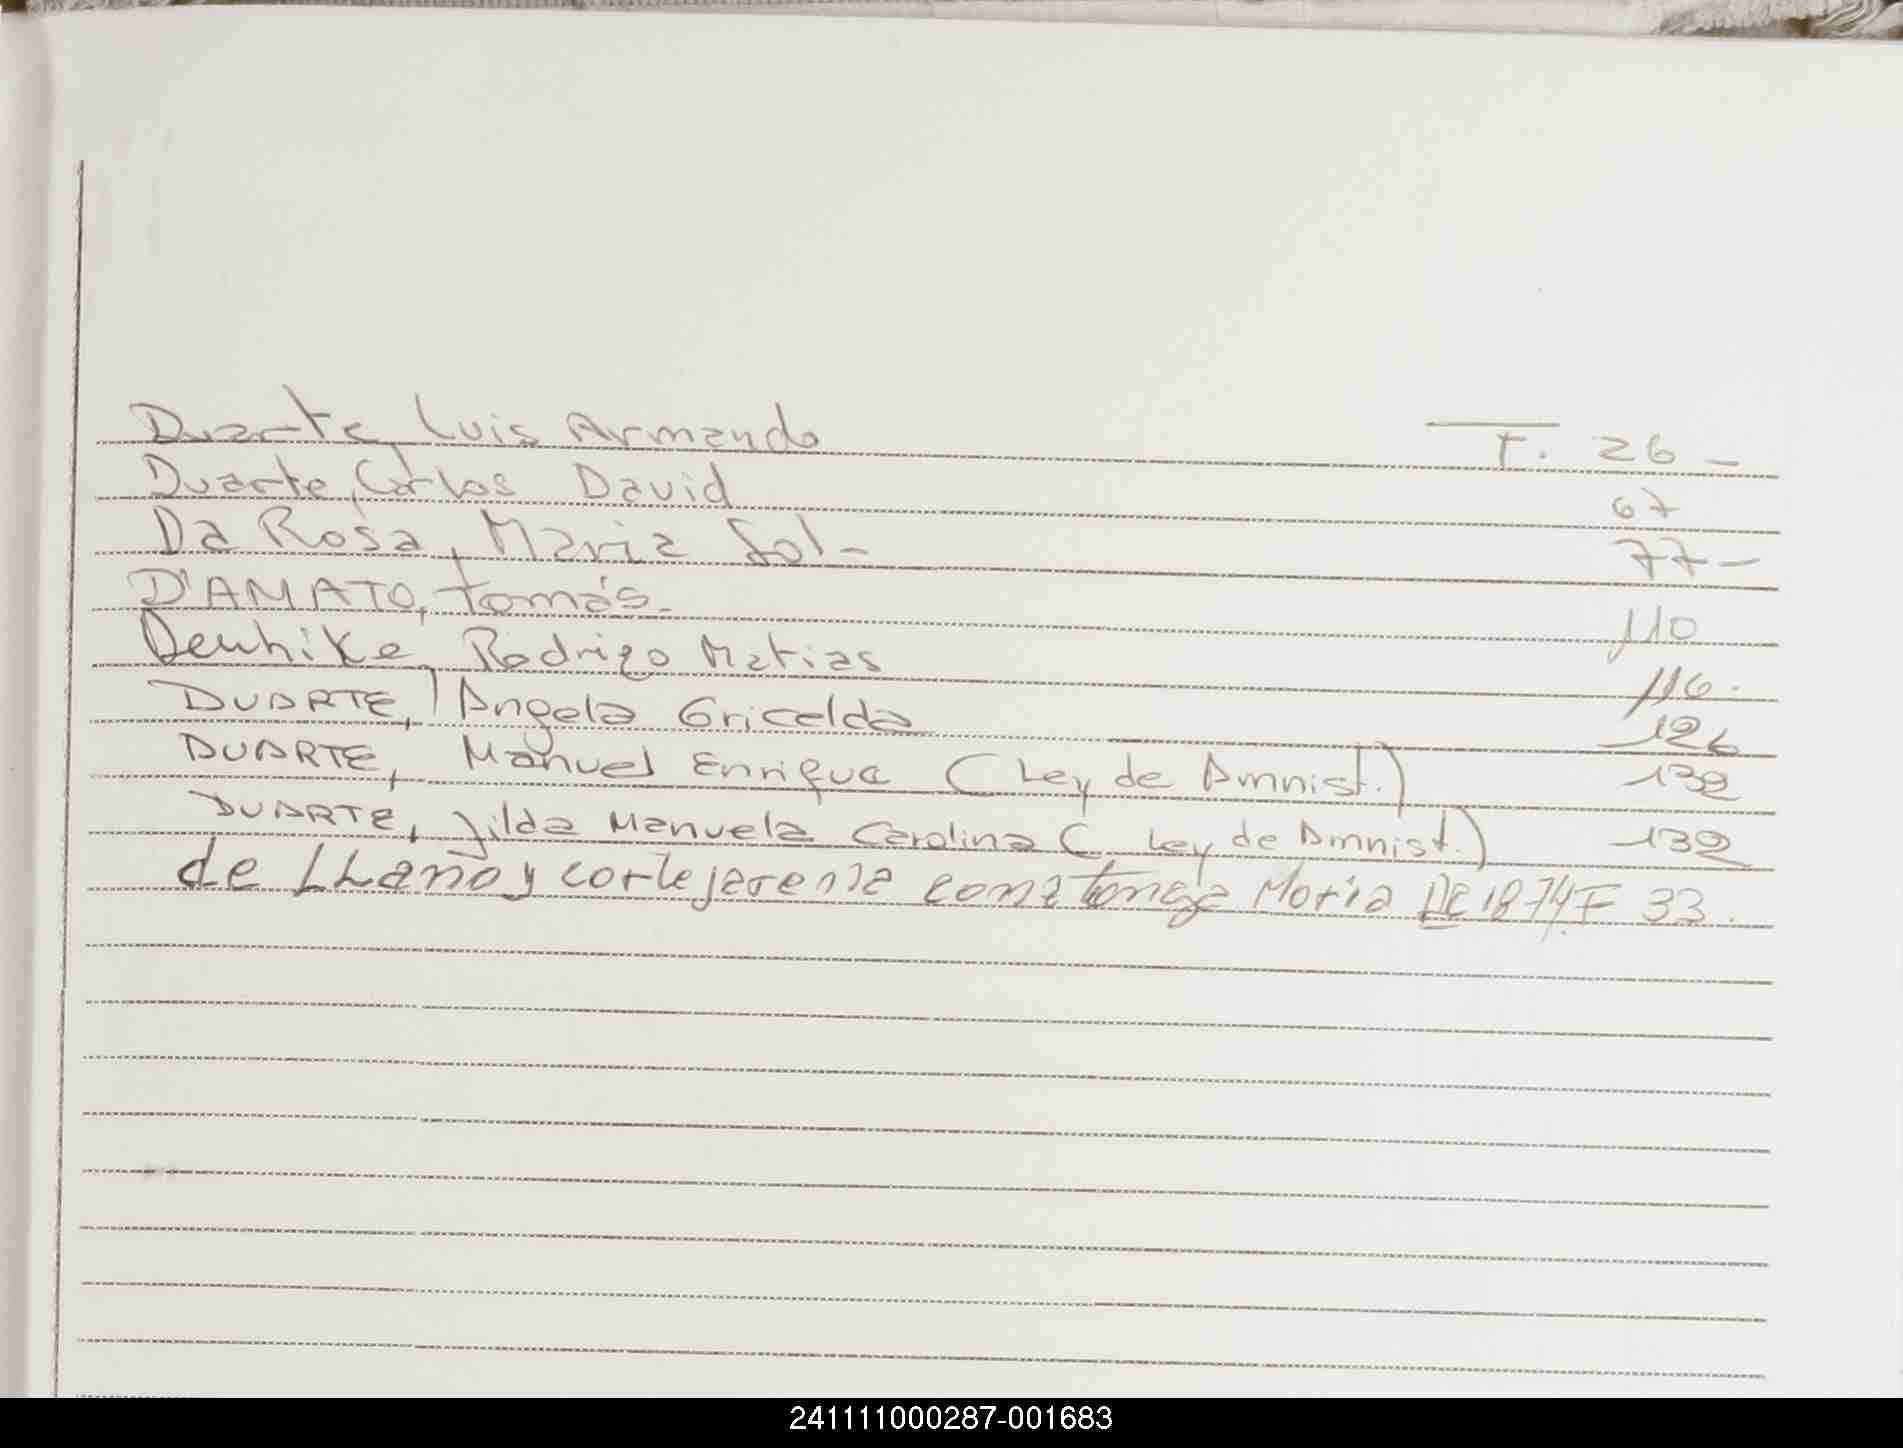 Duarte, Luis Armando F. 26 -
Duarte, Carlos David 67
Da Rosa, Maria Sol - 77 -
D'AMATO, Tomás. 110
Rodrigo Matias 116.
DUARTE, Angela Gricelda 126
DUARTE, Manuel Enrique (Ley de Amnist.) 132
DUARTE, Jilda Manuela Carolina (Ley de Amnist.) 132
de LLano y Maria DE 1874 F 33.
241111000287-001683